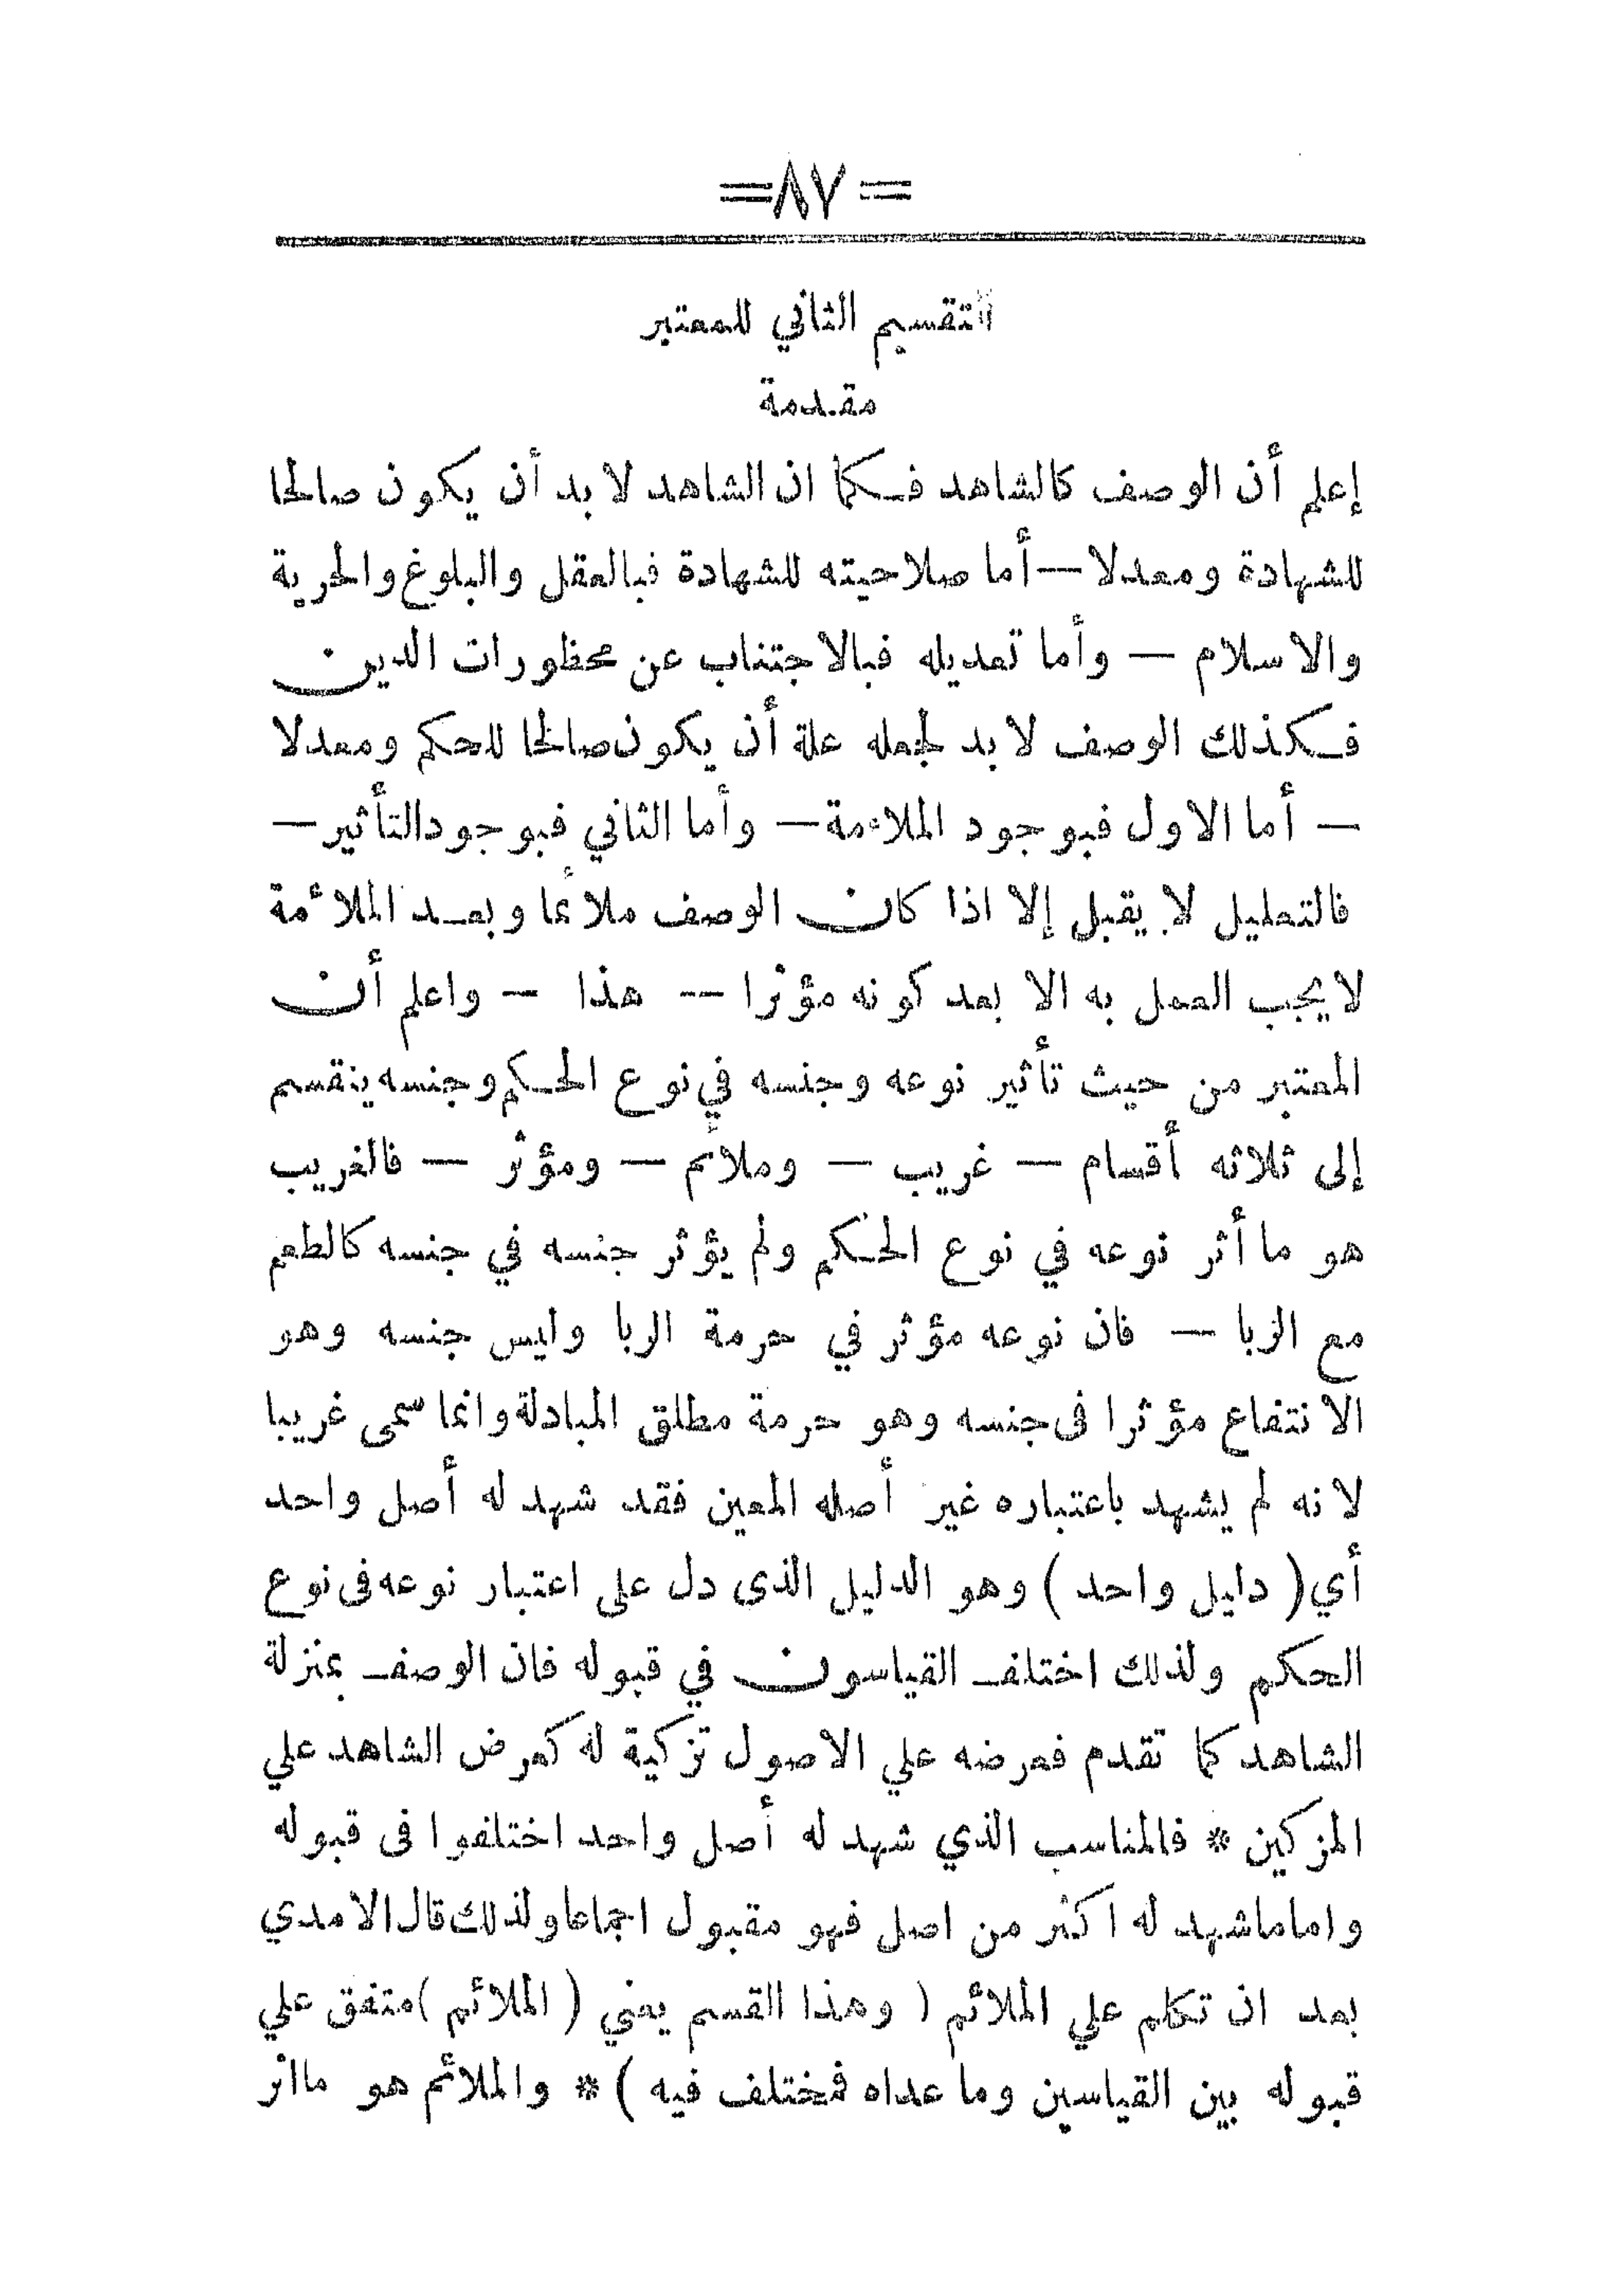 =٨٧=
التقسيم الثاني للمعتبر
مقدمة
إعلم أن الوصف كالشاهد فكما ان الشاهد لا بد أن يكون صالحا
للشهادة ومعدلا — أما صلاحيته للشهادة فبالعقل والبلوغ والحرية
والاسلام — وأما تعديله فبالاجتناب عن محظورات الدين
فكذلك الوصف لا بد لجعله علة أن يكون صالحا للحكم ومعدلا
— أما الاول فبوجود الملاءمة — وأما الثاني فبوجود التأثير —
فالتعليل لا يقبل إلا اذا كان الوصف ملائما وبعد الملائمة
لا يجب العمل به الا بعد كونه مؤثرا -- هذا — واعلم أن
المعتبر من حيث تأثير نوعه وجنسه في نوع الحكم وجنسه ينقسم
إلى ثلاثه أقسام — غريب — وملائم — ومؤثر — فالغريب
هو ما أثر نوعه في نوع الحكم ولم يؤثر جنسه في جنسه كالطعم
مع الربا — فان نوعه مؤثر في حرمة الربا وليس جنسه وهو
الانتفاع مؤثرا فى جنسه وهو حرمة مطلق المبادلة وانما سمى غريبا
لانه لم يشهد باعتباره غير أصله المعين فقد شهد له أصل واحد
أي ( دليل واحد ) وهو الدليل الذى دل على اعتبار نوعه فى نوع
الحكم ولذلك اختلف القياسون في قبوله فان الوصف بمنزلة
الشاهد كما تقدم فعرضه علي الاصول تزكية له كعرض الشاهد علي
المزكين * فالمناسب الذي شهد له أصل واحد اختلفوا فى قبوله
واما ماشهد له اكثر من اصل فهو مقبول اجماعا ولذلك قال الامدي
بعد ان تكلم علي الملائم ( وهذا القسم يعني ( الملائم ) متفق علي
قبوله بين القياسين وما عداه فمختلف فيه ) * والملائم هو مااثر